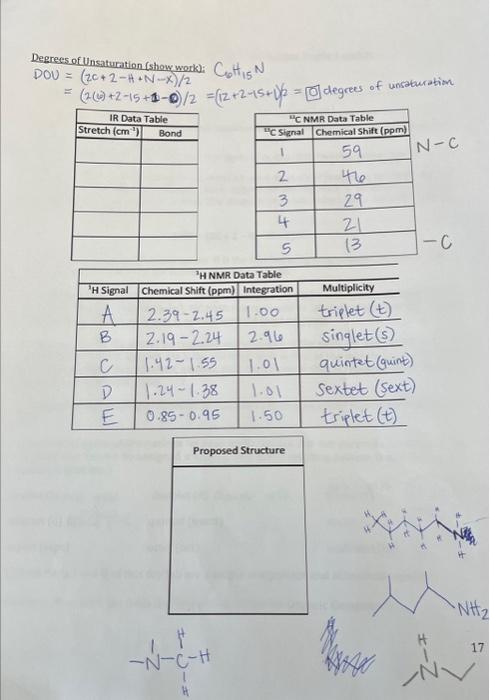 Degrees of Unsaturation (show work): C6H15N
DOU = (2C+2-H+N-X)/2
= (2(6)+2-15+1-0)/2 = (12+2-15+1)/2 = 0 degrees of unsaturation
IR Data Table
Stretch (cm⁻¹) Bond
¹³C NMR Data Table
¹³C Signal Chemical Shift (ppm)
1 59 N-C
2 46
3 29
4 21
5 13 -C
¹H NMR Data Table
¹H Signal Chemical Shift (ppm) Integration Multiplicity
A 2.39-2.45 1.00 triplet (t)
B 2.19-2.24 2.96 singlet (s)
C 1.42-1.55 1.01 quintet (quint)
D 1.24-1.38 1.01 sextet (sext)
E 0.85-0.95 1.50 triplet (t)
Proposed Structure
NH2
H
-N-C-H
H
H
N
17